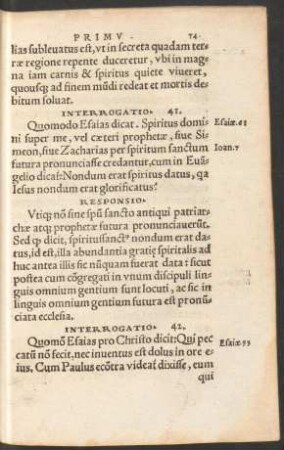 PRIMV. 14.
lias subleuatus est, vt in secreta quadam ter-
ræ regione repente duceretur, vbi in mag-
na iam carnis & spiritus quiete viueret,
quousq; ad finem mūdi redeat et mortis de-
bitum soluat.
INTERROGATIO. 41.
Quomodo Esaias dicat. Spiritus domi- Esaiæ.61
ni super me, vel cæteri prophetæ, siue Si-
meon, siue Zacharias per spiritum sanctum Ioan.7
futura pronunciasse credantur, cum in Euā-
gelio dicat: Nondum erat spiritus datus, qa
Iesus nondum erat glorificatus?
RESPONSIO.
Vtiq; nō sine spū sancto antiqui patriar-
chæ atq; prophetæ futura pronunciauerūt.
Sed qp dicit, spiritussanctꝰ nondum erat da-
tus, id est, illa abundantia gratię spiritalis ad
huc antea illis sic nūquam fuerat data: sicut
postea cum cōgregati in vnum discipuli lin-
guis omnium gentium sunt locuti, ac sic in
linguis omnium gentium futura est pronū-
ciata ecclesia.
INTERROGATIO. 42.
Quomō Esaias pro Christo dicit: Qui pec Esaiæ 53
catū nō fecit, nec inuentus est dolus in ore e-
ius. Cum Paulus ecōtra videat' dixisse, eum
qui